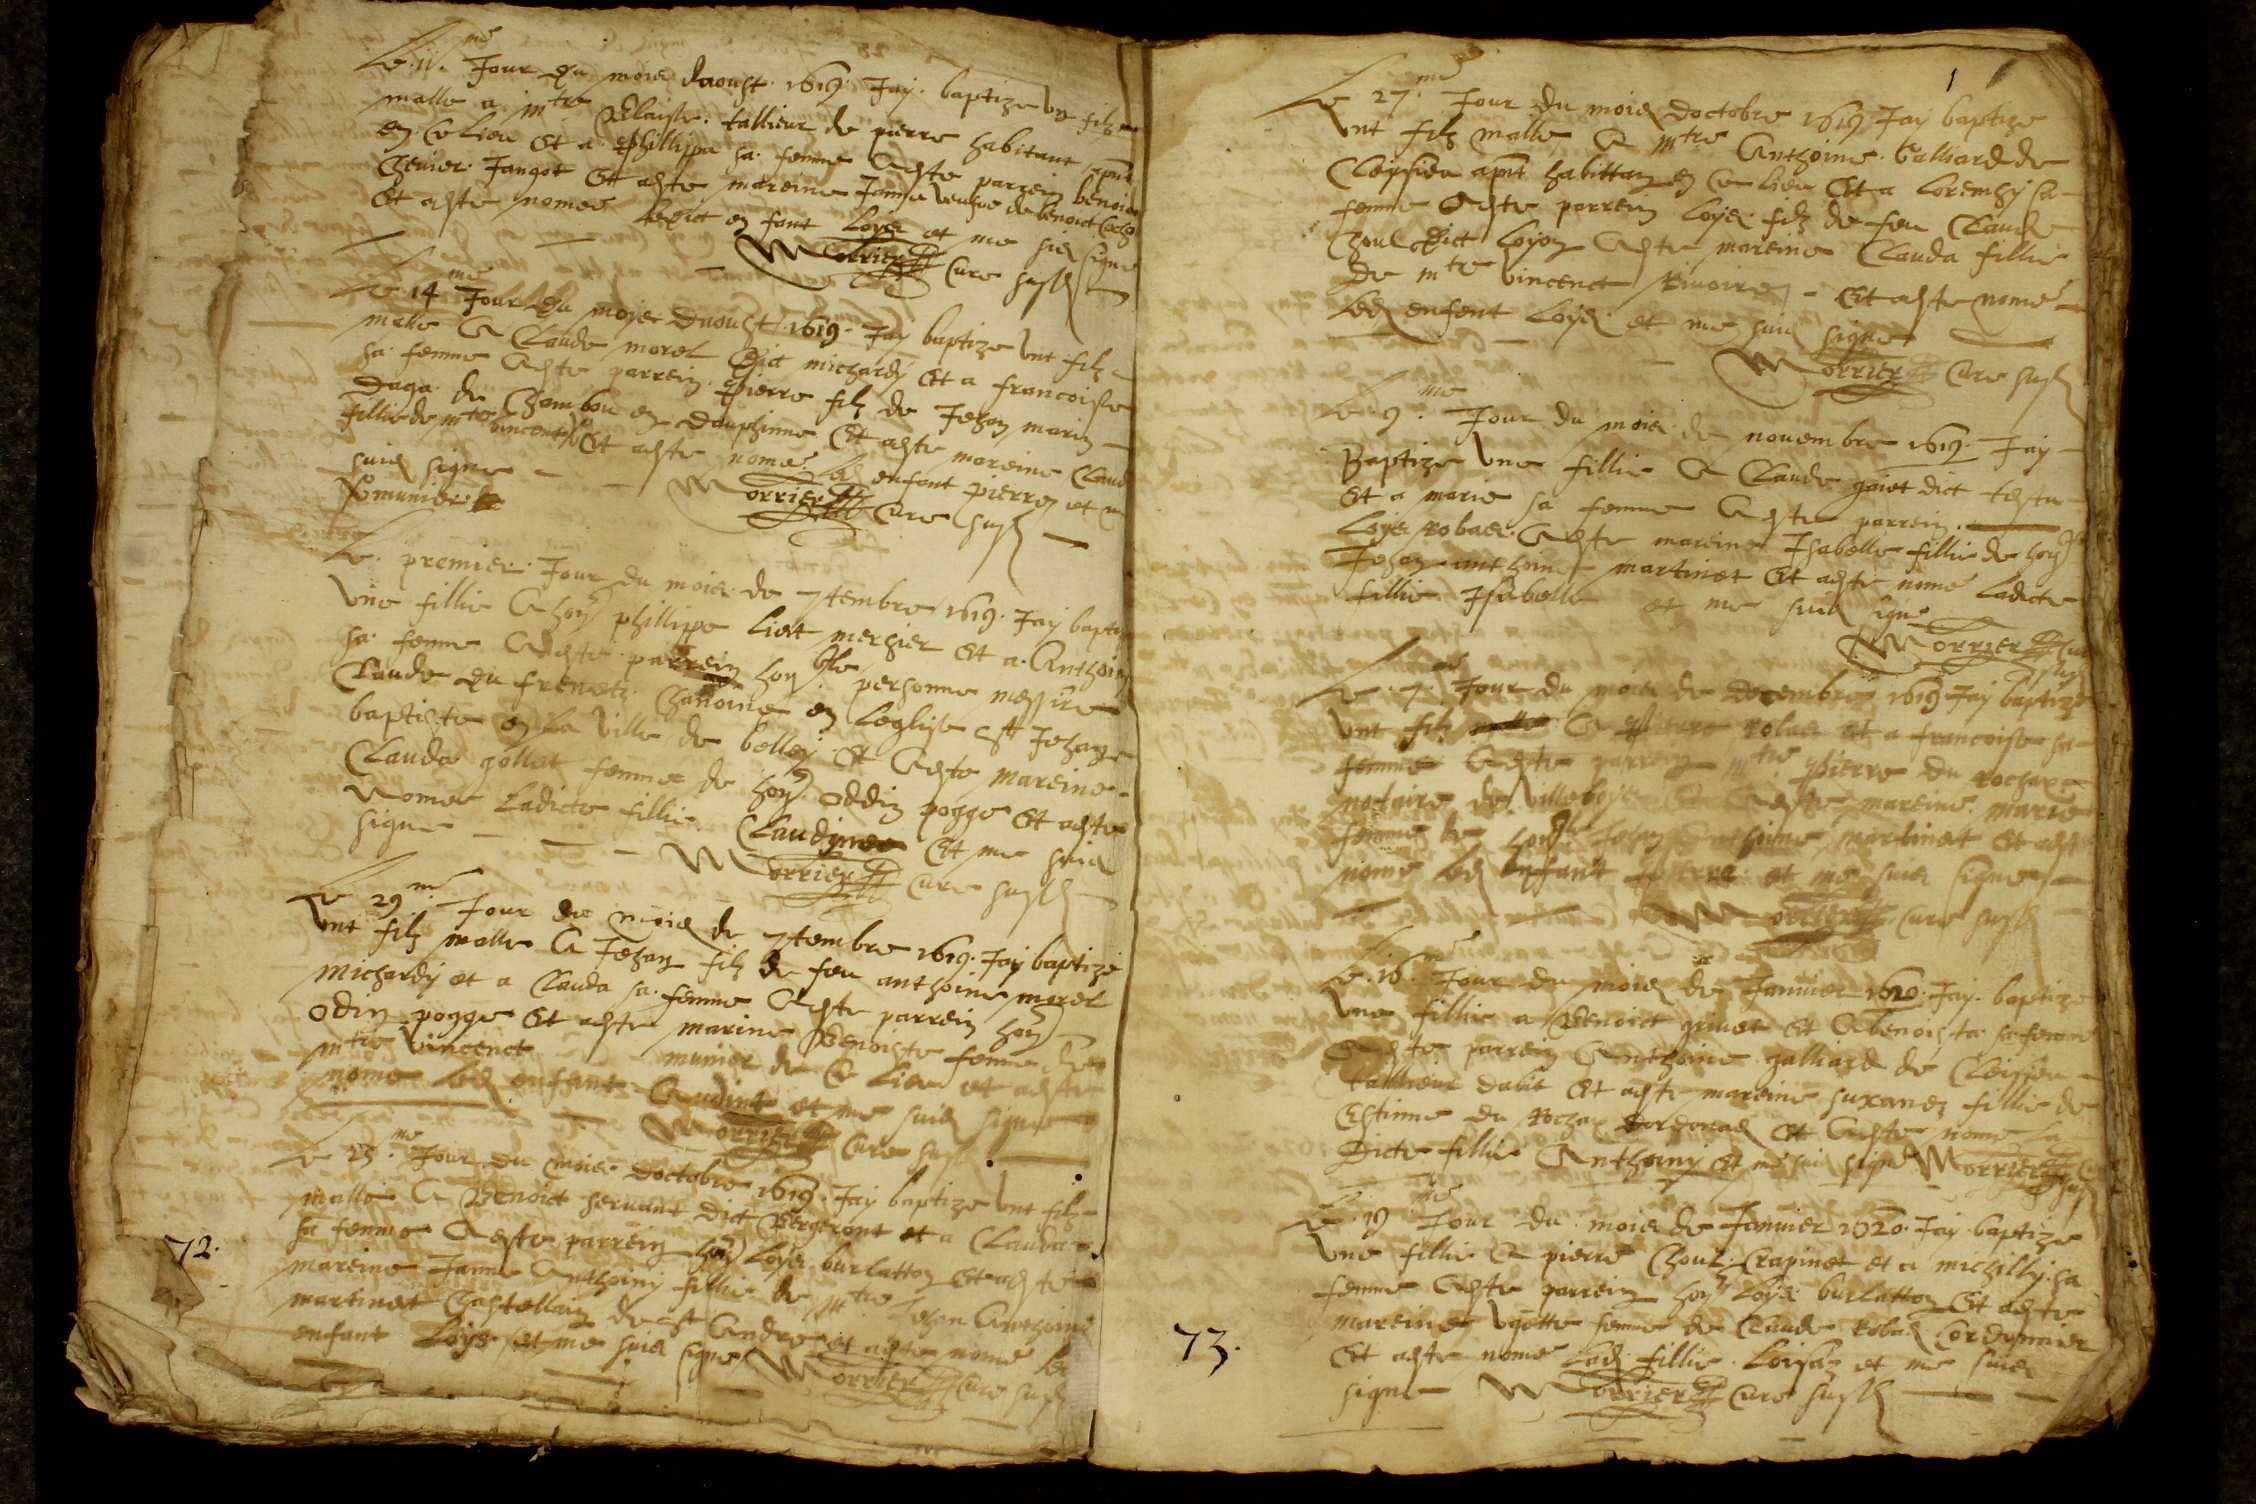 Le 11.me Jour du mois daoust 1619. Jay baptize vnt filz
malle a mtre Claiste tallieur de pierre habitant apnt
en ce lieu Et a phillippa sa femme A este parrein benoict
Chevier Jangot Et a este mareine Jamja veufve de benoict
Et a este nomee ledict enfant Loys et me suis signe
Morrier Cure susd
Le 14 me Jour du moys daoust 1619. Jay baptize vnt filz
malle A Claude morel dict michardy Et a francoise
sa femme A este parrein pierre filz de Jehan marin
Daga de Chambou en dauphinne Et a este mareine Claud
fillie de mtre vincent Et a este nome led enfant pierre et me
suis signe
munier Morrier Cure susd
Le premier Jour du mois de 7tembre 1619. Jay bapti
vne fillie A hon phillippe liet mercier Et a Anthoin
sa femme A este parrein honble personne messire
Claude du frenetz Chanoine en leglise St Jehan
baptiste en la ville de belley Et A este mareine
Clauda gollet femme de hon oddin pogge Et a este
nomee ladicte fillie Claudine Et me suis
signe
Morrier Cure susd
Le 29.me Jour du mois de 7tembre 1619. Jay baptize
vnt filz malle A Jehan filz de feu anthoine morel
michardy et a Clauda sa femme A este parrein hon
Odin pogge Et a este marine Benoiste femme de
mtre vincenct munier de ce lieu et a este
nome led enfant Audint et me suis signe
Morrier Cure susd
Le 25.me Jour du mois doctobre 1619. Jay baptize vnt filz
malle A Benoict servant dict Bergeront et a Clauda
sa femme A este parrein hon loys burlatton Et a este
mareine Janne Anthoiny fillie de mtre Jehan Anthoine
martinet Chastellain de st Andre et a este nome led
enfant Loys et me suis signe Morrier Cure susd
72.
1
Le 27.me Jour du mois doctobre 1619 Jay baptize
vnt filz malle A mtre Anthoine Galliard de
Cleyssieu apnt habittan en ce lieu Et a loremhy sa
femme A este parrein loys filz de feu Claude
Choul dict loyon A este mareine Clauda fillie
de mtre vincenct Riuoire Et a este nome
led enfent Loys et me suis signe
Morrier Cure susd
Le 9.me Jour du mois de nouembre 1619. Jay
Baptize vne fillie A Claude gaiet dict testu
Et a marie sa femme A este parrein
loys robas A este mareine Isabelle fillie de hon
Jehan anthoine martinet Et a este nome Ladicte
fillie Isabelle et me suis signe
Morrier Cure
susd
Le 7.me Jour du mois de decembre 1619 Jay baptize
vnt filz malle A pierre robas et a francoise sa
femme A este parrein mtre pierre du rochax
notaire de villeboys Et A este mareine marie
femme de honble Jehan Anthoine martinet Et a este
nome led enfant pierre et me suis signe
Morrier Cure susd
Le 16.me Jour du mois de Januier 1620. Jay baptize
vne fillie a Benoict griuet Et A benoista sa femme
A este parrein Anthoine galliard de Cleissieu
tallieur dabit Et a este mareine suxanez fillie de
Estienne du Rochax Et A este nome la
dicte fillie Anthoiny Et me suis signe Morrier Cure
susd
Le 19.me Jour du mois de Januier 1620. Jay baptize
vne fillie A pierre Choul Crapinet et a michilly sa
femme A este parrein hon loys burlatton Et a este
mareine vgotte femme de Claude Robas Cordonnier
Et a este nome lad fillie Loisaz et me suis
signe Morrier Cure susd
73.